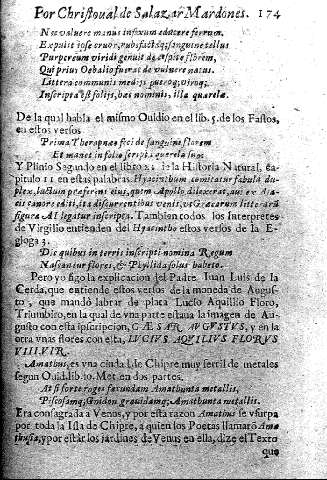 Por Christoual de Salazar Mardones. 174
Nec valuere manus infixum educere ferrum.
Expulit ipse cruor, rubefactaq; sanguine tellus
Purpureum viridi genuit de cespite florem,
Qui prius Oebalio fuerat de vulnere natus.
Littera communis medijs pueroq; viroq;
Inscripta est folijs, hæc nominis, illa querelæ.
De la qual habla el mismo Ouidio en el lib. 5. de los Fastos,
en estos versos
Prima Therapnæo feci de sanguine florem
Et manet in folio scripta querela suo:
Y Plinio Segundo en el libro 21. de la Historia Natural, ca-
pitulo 11 en estas palabras Hyacinthum comitatur fabula du-
plex, luctum præferens eius, quem Apollo dilexerat, aut ex A-
iacis cruore editi, ita discurrentibus venis, vt Græcarum litterarū
figura AI legatur inscripta. Tambien todos los Interpretes
de Virgilio entienden del Hyacintho estos versos de la E-
gloga 3.
Dic quibus in terris inscripti nomina Regum
Nascantur flores, & Phyllida solus habeto.
Pero yo sigo la explicacion del Padre Iuan Luis de la
Cerda, que entiende estos versos de la moneda de Augus-
to, que mandó labrar de plata Lucio Aquilio Floro,
Triumbiro, en la qual de vna parte estaua la imagen de Au-
gusto con esta inscripcion, CÆSAR AVGVSTVS, y en la
otra vnas flores con esta, LVCIVS AQVILIVS FLORVS
VIII.VIR.
Amatus, es vna ciudad de Chipre muy fertil de metales
segun Ouid. lib. 10. Met. en dos partes.
At si forte roges fecundam Amathunta metallis,
Piscosamq; Gnidon grauidamq; Amathunta metallis.
Era consagrada a Venus, y por esta razon Amathus se vsurpa
por toda la Isla de Chipre, a quien los Poetas llamarō Ama
thusia, y por estàr los jardines de Venus en ella, dize el Texto
que